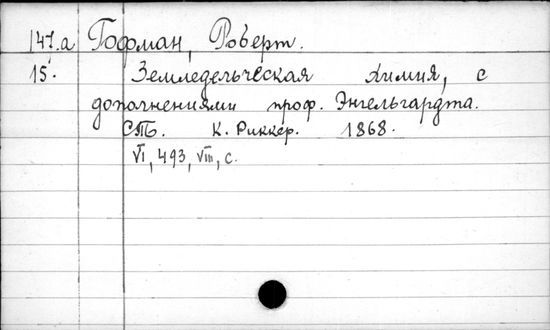 147.а Гофман, Роберт.
15. Земледельческая химия, с
дополнениями проф. Энгельгардта.
СПб. К. Риккер. 1868.
VI, 493, VIII, с.